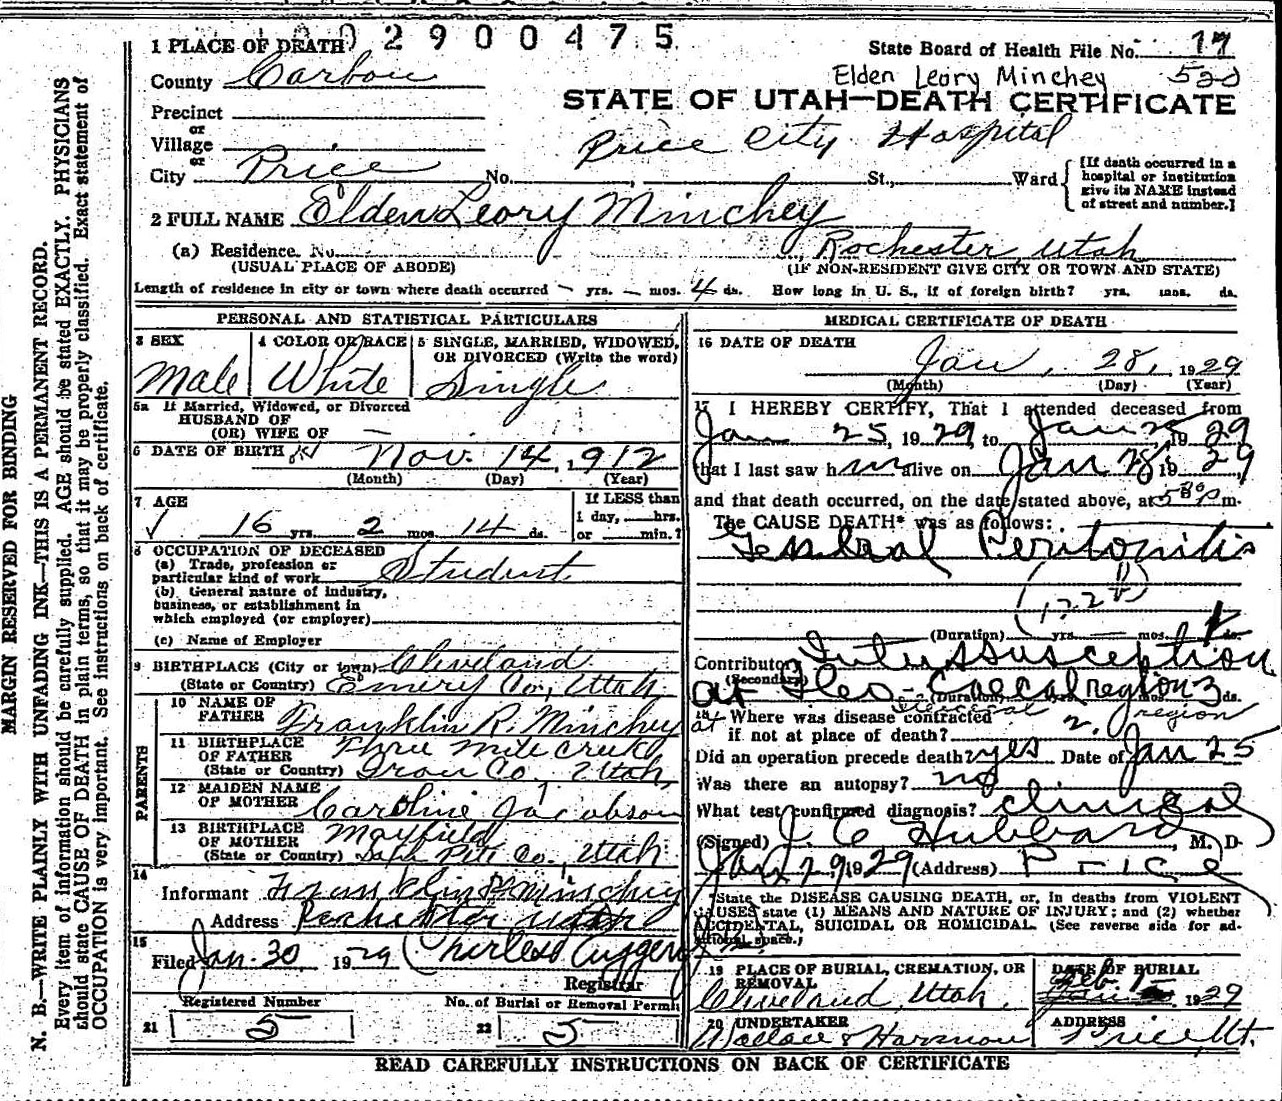 02900475
1 PLACE OF DEATH
State Board of Health File No. 17
County Carbon
Elden Leory Minchey 520
STATE OF UTAH—DEATH CERTIFICATE
Precinct
or
Village
Price City Hospital
or
City Price No. , St., Ward
[If death occurred in a hospital or institution give its NAME instead of street and number.]
2 FULL NAME Elden Leory Minchey
(a) Residence. No. , Rochester, Utah
(USUAL PLACE OF ABODE) (IF NON-RESIDENT GIVE CITY OR TOWN AND STATE)
Length of residence in city or town where death occurred — yrs. — mos. 4 ds. How long in U. S., if of foreign birth? yrs. mos. ds.
PERSONAL AND STATISTICAL PARTICULARS
3 SEX Male
4 COLOR OR RACE White
5 SINGLE, MARRIED, WIDOWED, OR DIVORCED (Write the word) Single
5a If Married, Widowed, or Divorced
HUSBAND OF
(OR) WIFE OF —
6 DATE OF BIRTH Nov. 14, 1912
(Month) (Day) (Year)
7 AGE
16 yrs. 2 mos. 14 ds.
If LESS than
1 day, hrs.
or min.?
8 OCCUPATION OF DECEASED
(a) Trade, profession or
particular kind of work Student
(b) General nature of industry,
business, or establishment in
which employed (or employer)
(c) Name of Employer
9 BIRTHPLACE (City or town) Cleveland
(State or Country) Emery Co., Utah
PARENTS
10 NAME OF
FATHER Franklin R. Minchey
11 BIRTHPLACE
OF FATHER Three Mile Creek
(State or Country) Iron Co., Utah
12 MAIDEN NAME
OF MOTHER Caroline Jacobson
13 BIRTHPLACE
OF MOTHER Mayfield
(State or Country) San Pete Co., Utah
14
Informant Franklin R Minchey
Address Rochester Utah
15
Filed Jan. 30, 1929
Registrar
Registered Number No. of Burial or Removal Permit
21 5 22 5
MEDICAL CERTIFICATE OF DEATH
16 DATE OF DEATH
Jan. 28, 1929
(Month) (Day) (Year)
17 I HEREBY CERTIFY, That I attended deceased from
Jan 25, 1929 to Jan 28, 1929
that I last saw him alive on Jan 28, 1929
and that death occurred, on the date stated above, at 5:30 P m.
The CAUSE DEATH* was as follows:
General Peritonitis
(Duration) yrs. — mos. 1 ds.
Contributory Intussusception
(Secondary)
at Ileo-Caecal region 3 ds.
(Duration) yrs. mos.
18 Where was disease contracted
if not at place of death?
region
Did an operation precede death? yes Date of Jan 25
Was there an autopsy? no
What test confirmed diagnosis? clinical
(Signed) J. C Hubbard, M. D.
Jan 29 1929 (Address) Price
*State the DISEASE CAUSING DEATH, or, in deaths from VIOLENT
CAUSES state (1) MEANS AND NATURE OF INJURY; and (2) whether
ACCIDENTAL, SUICIDAL OR HOMICIDAL. (See reverse side for ad-
ditional space.)
19 PLACE OF BURIAL, CREMATION, OR
REMOVAL
Cleveland, Utah.
DATE OF BURIAL
Feb. 1 1929
20 UNDERTAKER
Wallace & Harmon
ADDRESS
Price, Ut.
READ CAREFULLY INSTRUCTIONS ON BACK OF CERTIFICATE
MARGIN RESERVED FOR BINDING
N. B.—WRITE PLAINLY WITH UNFADING INK—THIS IS A PERMANENT RECORD.
Every item of information should be carefully supplied. AGE should be stated EXACTLY. PHYSICIANS
should state CAUSE OF DEATH in plain terms, so that it may be properly classified. Exact statement of
OCCUPATION is very important. See instructions on back of certificate.